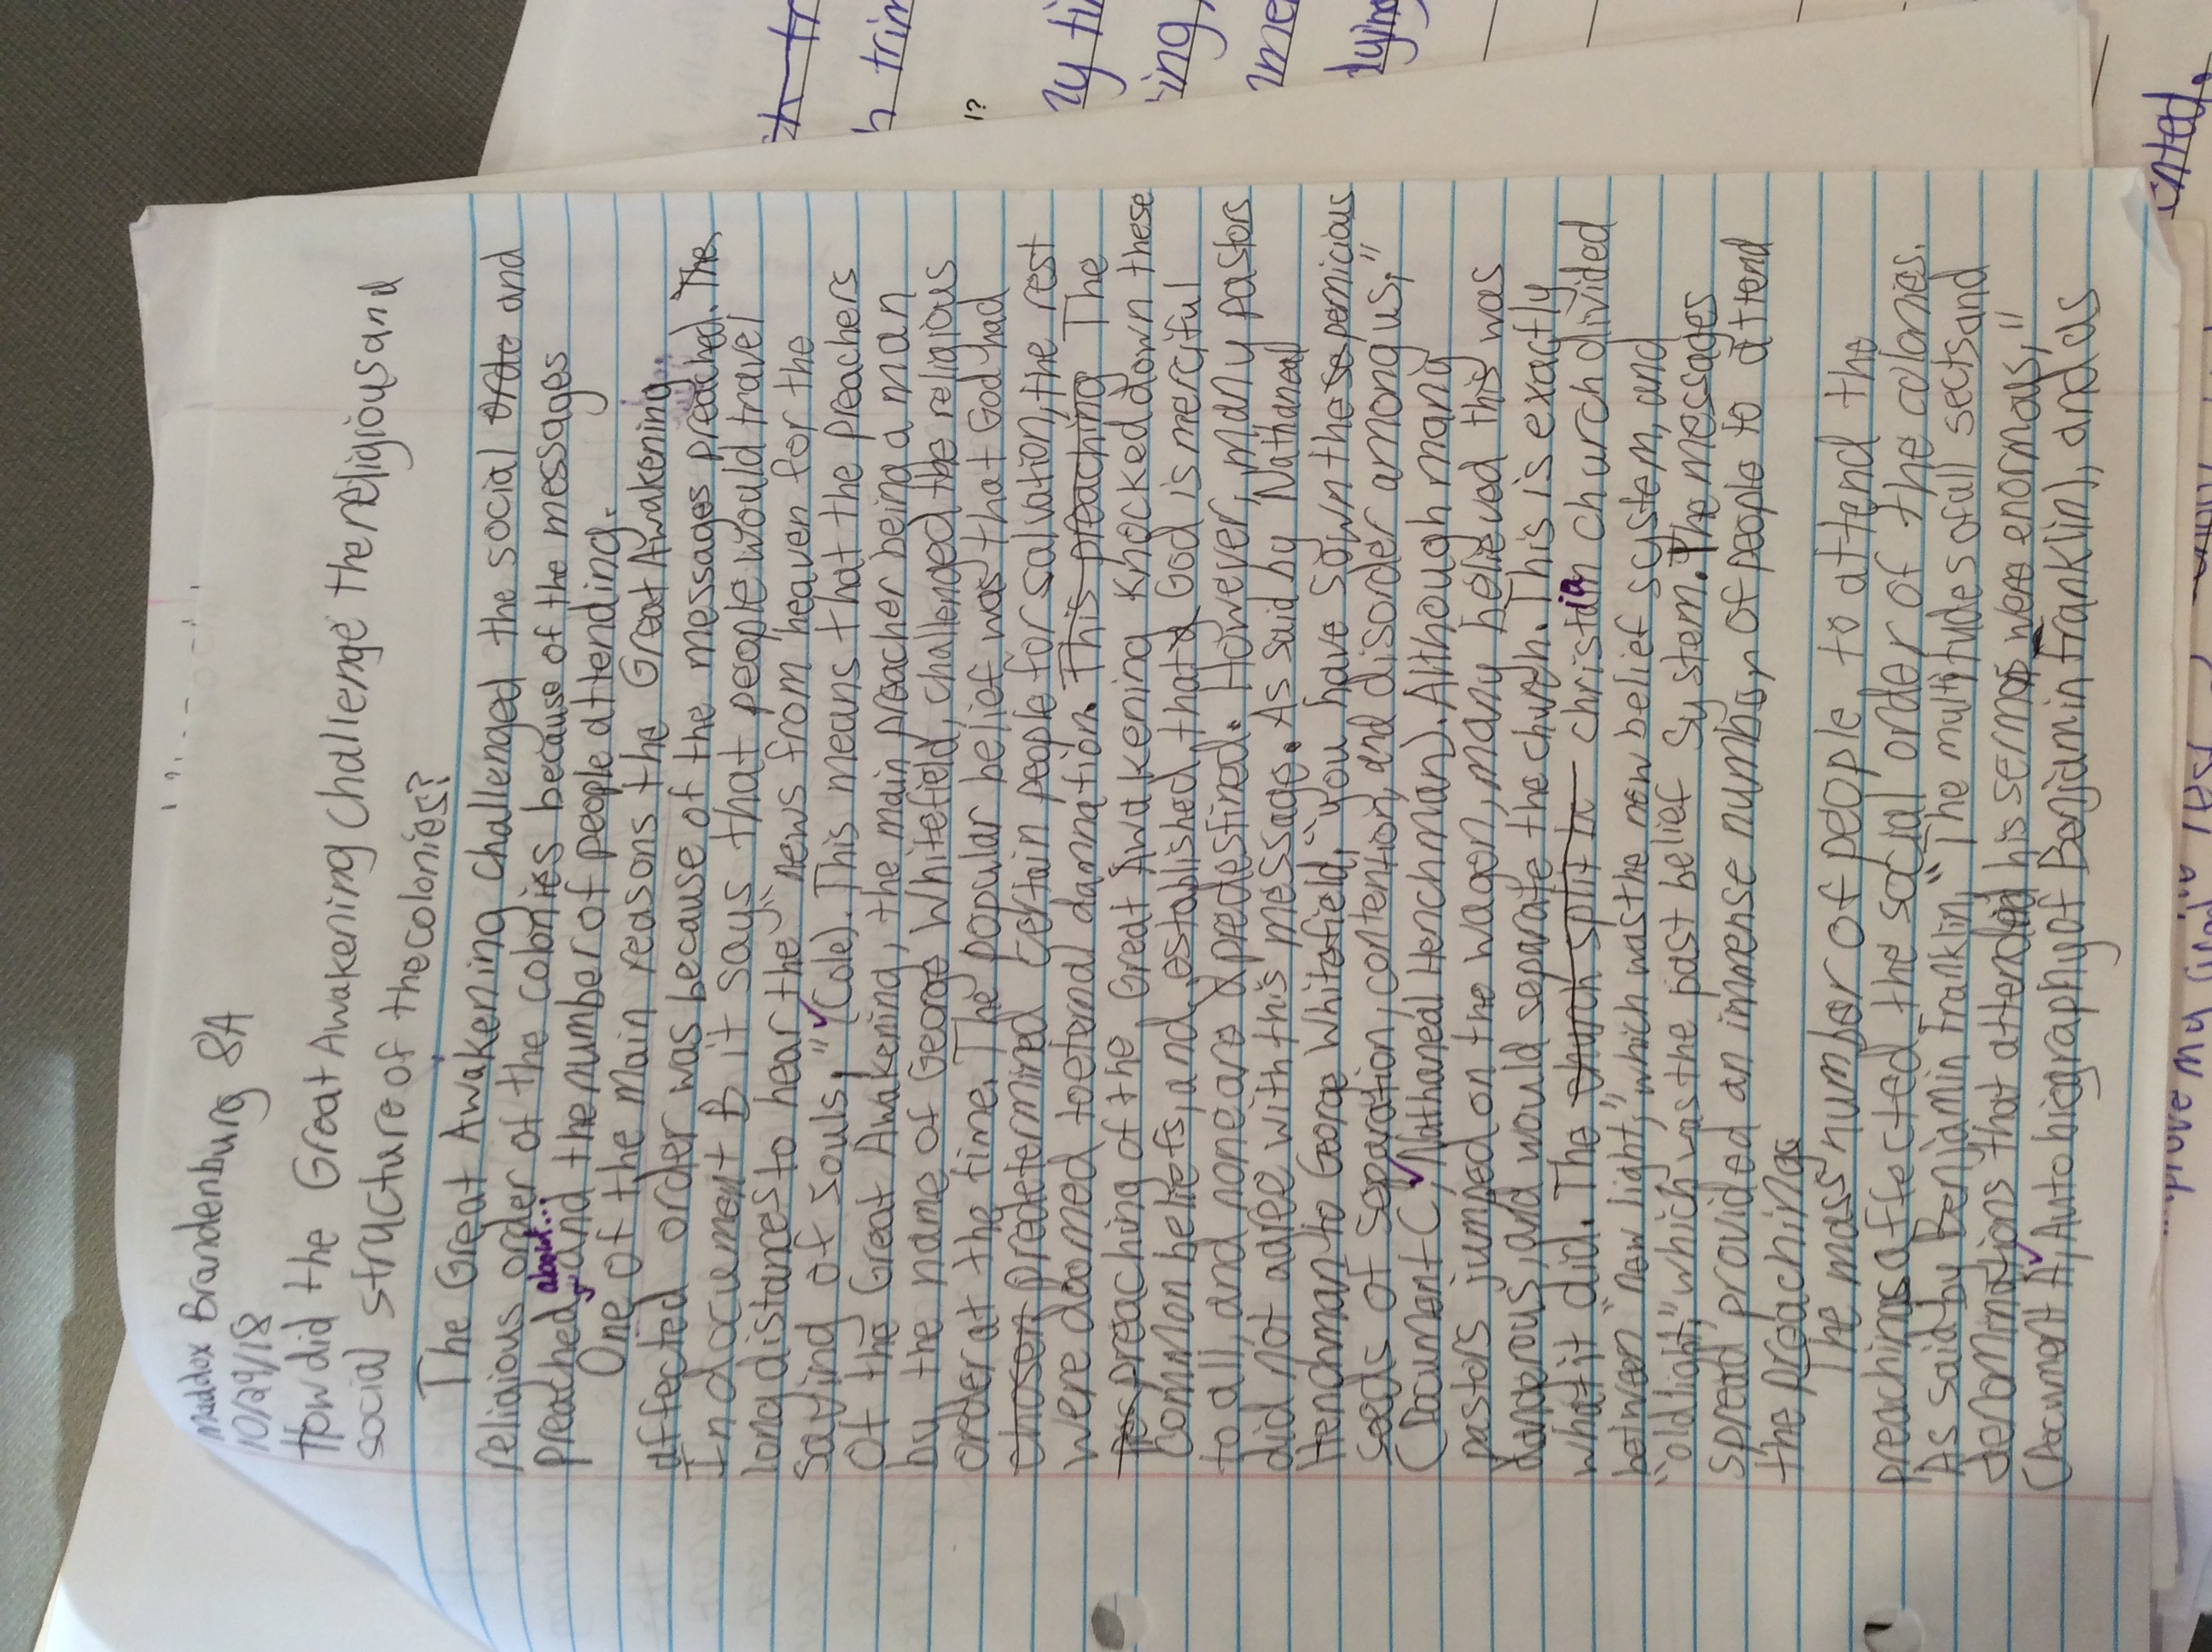 Maddox Brandenburg 8A
10/29/18
How did the Great Awakening challenge the religious and
social structure of the colonies?
The Great Awakening challenged the social orde and
religious order of the colonies because of the messages
about...
preached and the number of people attending.
One of the main reasons the Great Awakening
affected order was because of the messages preached. The
In document B it says that people would travel
long distances to hear the "news from heaven for the
saving of souls," (Cole). This means that the preachers
of the Great Awakening, the main preacher being a man
by the name of George Whitefield, challenged the religious
order at the time. The popular belief was that God had
chosen predetermined certain people for salvation, the rest
were doomed to eternal damnation. This preaching The
preaching of the Great Awakening knocked down these
common beliefs, and established that God is merciful
to all, and none are predestined. However, many pastors
did not agree with this message. As said by Nathaneal
Henchman to George Whitefield, "you have sown the se pernicious
seeds of separation, contention, and disorder among us,"
(Document C, Nathaneal Henchman). Although many
pastors jumped on the wagon, many believed this was
dangerous, and would separate the church. This is exactly
what it did. The church split be christian church divided
between "new light," which was the new belief system, and
"old light," which was the past belief system. The messages
spread provided an immense number of people to attend
the preachings
The mass number of people to attend the
preachings affected the social order of the colonies.
As said by Benjamin Franklin, "The multitudes of all sects and
denominations that attended his sermons were enormous,"
(Document A, Autobiography of Benjamin Franklin), and as
ch tr
h trim
l?
ny ti
ing
ime
lying
improve my
ented.